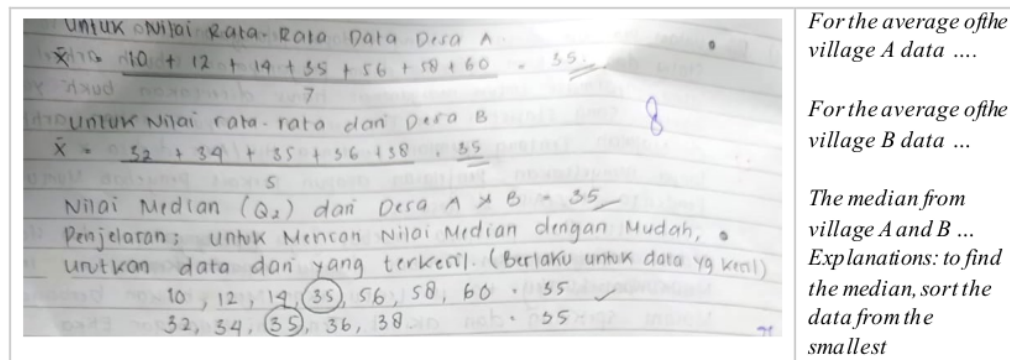 Untuk Nilai Rata-Rata Data Desa A
x̄ = 10 + 12 + 14 + 35 + 56 + 58 + 60 = 35
7
Untuk Nilai rata-rata dari Desa B
x̄ = 32 + 34 + 35 + 36 + 38 = 35
5
8
Nilai Median (Q2) dari Desa A & B = 35
Penjelasan: Untuk Mencari Nilai Median dengan Mudah,
urutkan data dari yang terkecil. (Berlaku untuk data yg kecil)
10, 12, 14, 35, 56, 58, 60 = 35
32, 34, 35, 36, 38 = 35
For the average ofthe
village A data ....
For the average ofthe
village B data ...
The median from
village A and B ...
Explanations: to find
the median, sort the
data from the
smallest